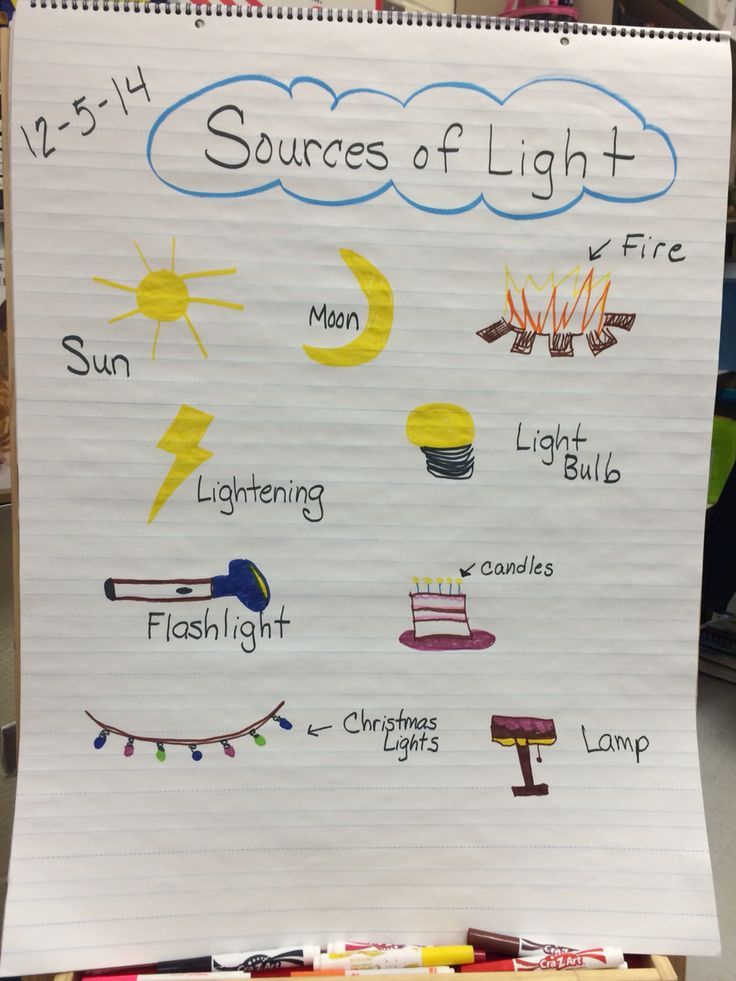 12-5-14
Sources of Light
Fire
Moon
Sun
Light
Bulb
Lightening
candles
Flashlight
Christmas
Lights
Lamp
Cra-Z-Art
Cra-Z-Art